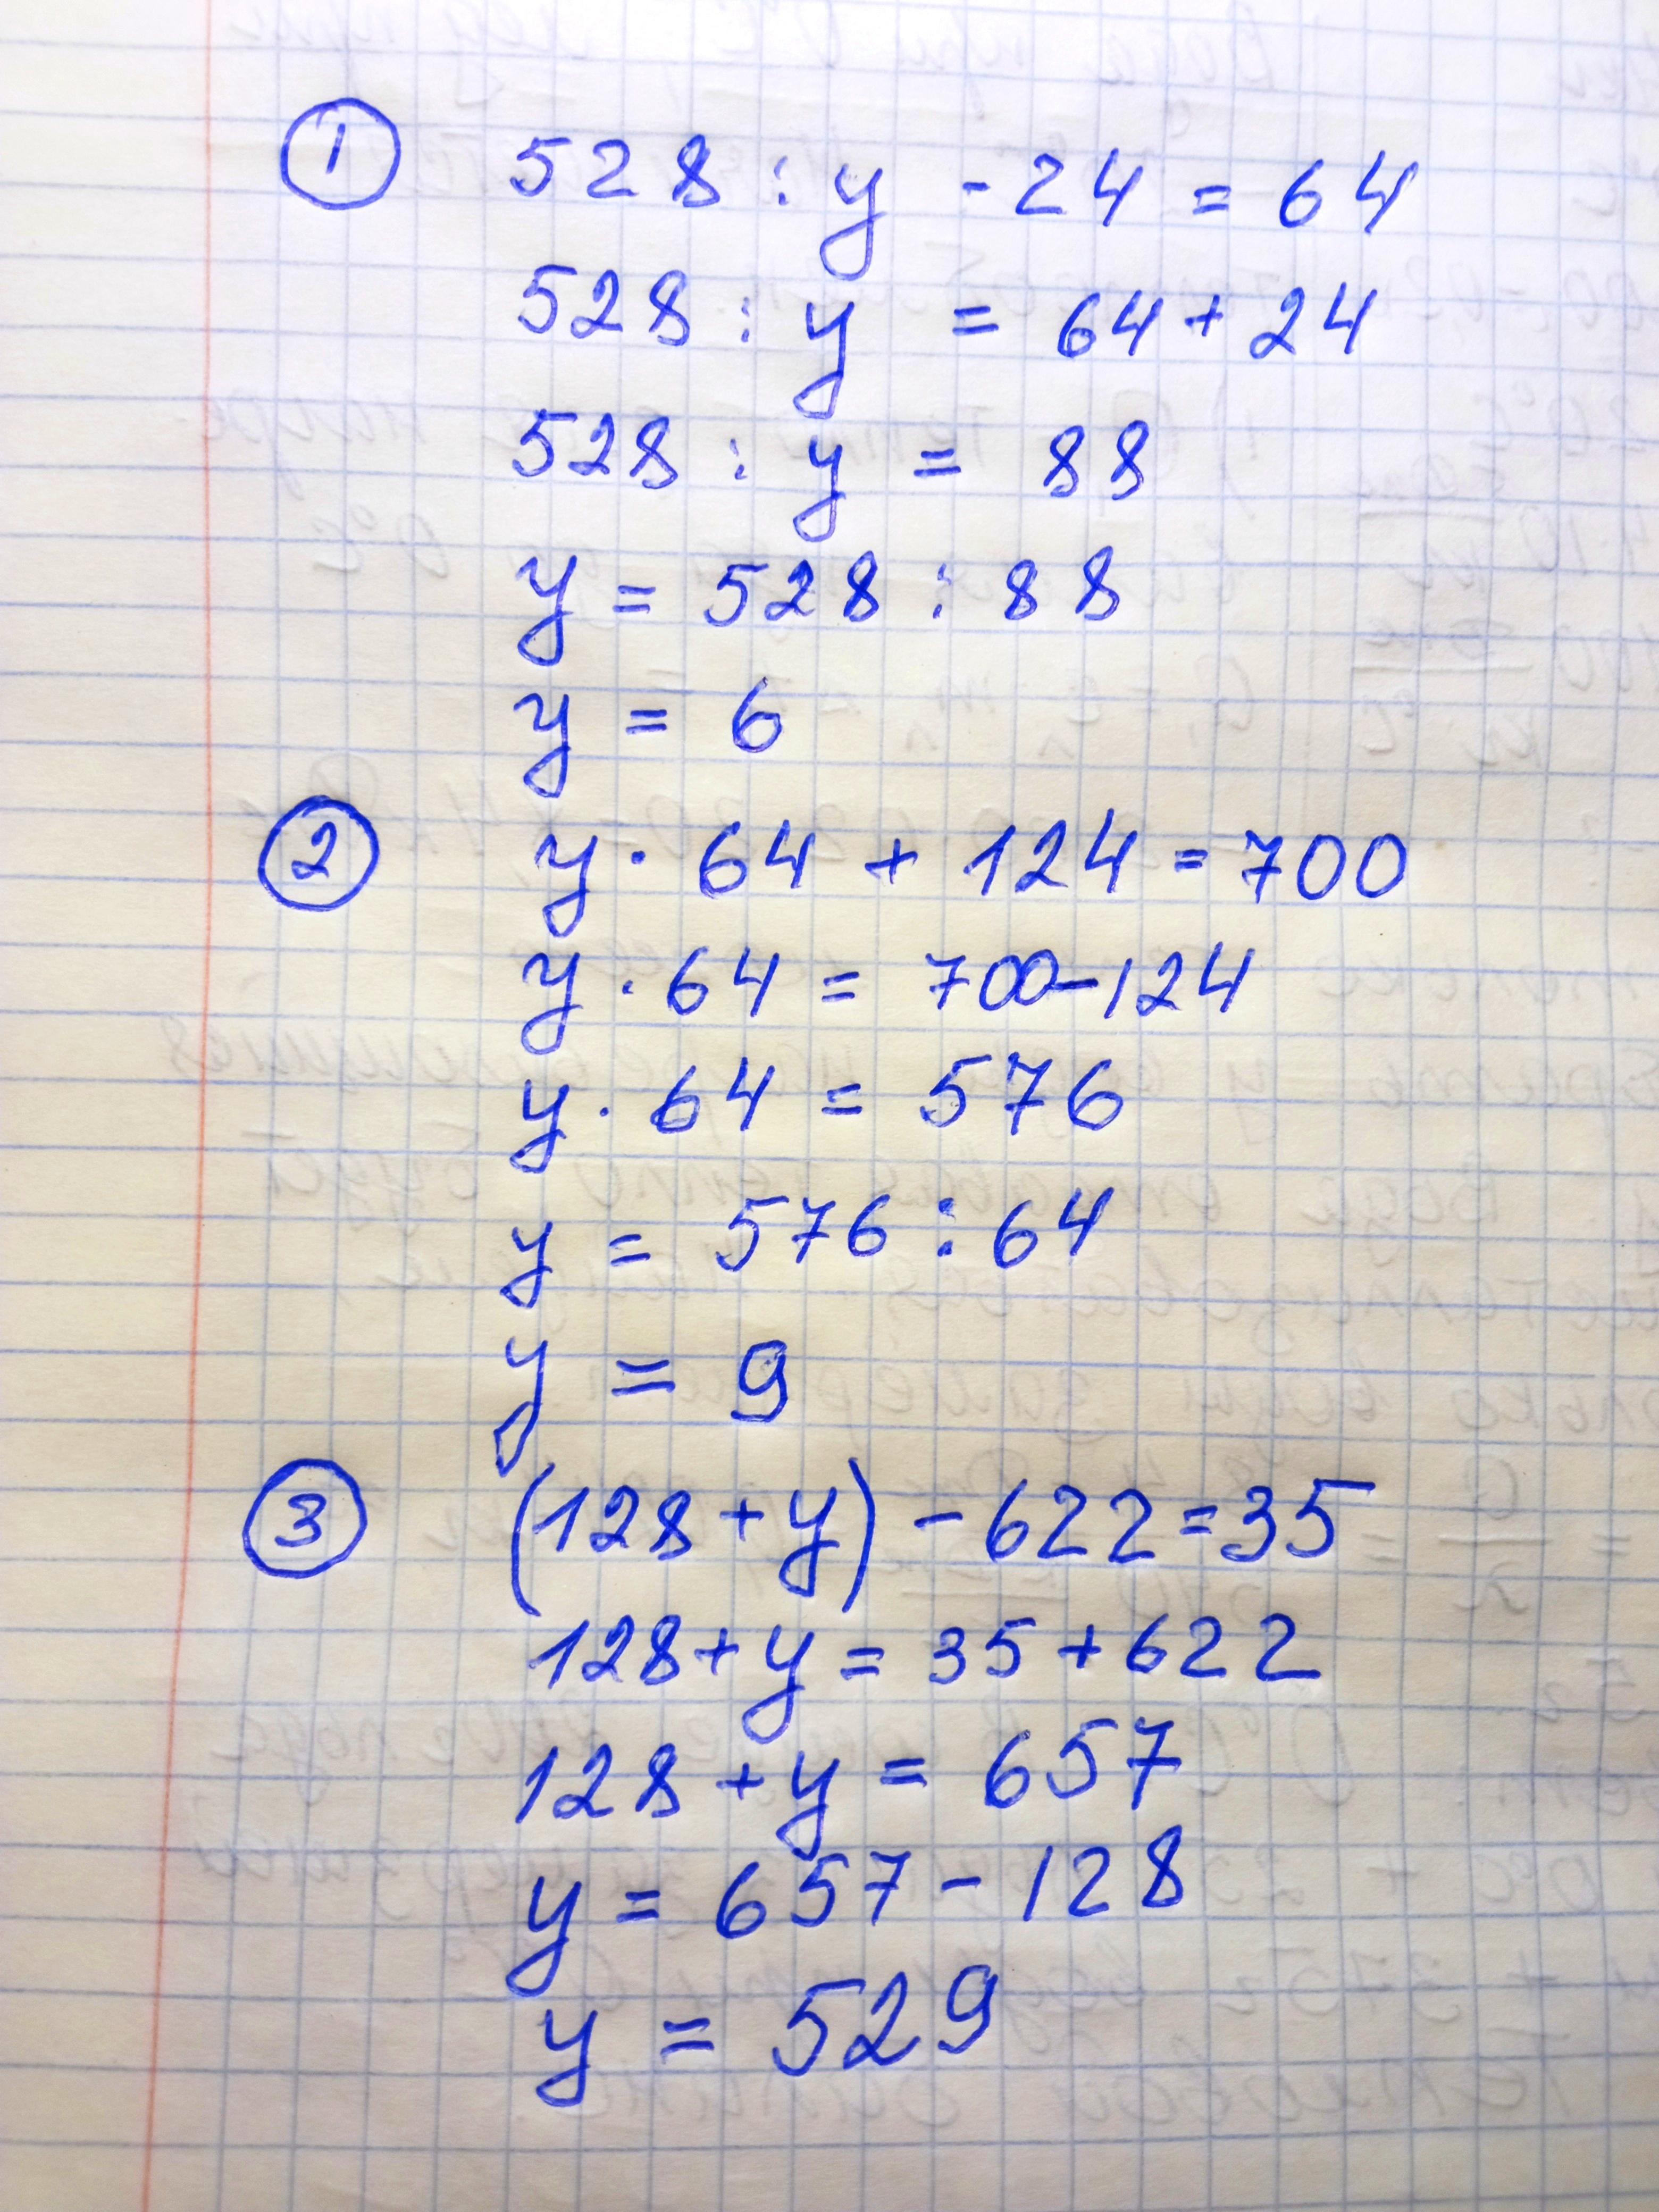 1 528 : y - 24 = 64
528 : y = 64 + 24
528 : y = 88
y = 528 : 88
y = 6
2 y · 64 + 124 = 700
y · 64 = 700 - 124
y · 64 = 576
y = 576 : 64
y = 9
3 (128 + y) - 622 = 35
128 + y = 35 + 622
128 + y = 657
y = 657 - 128
y = 529